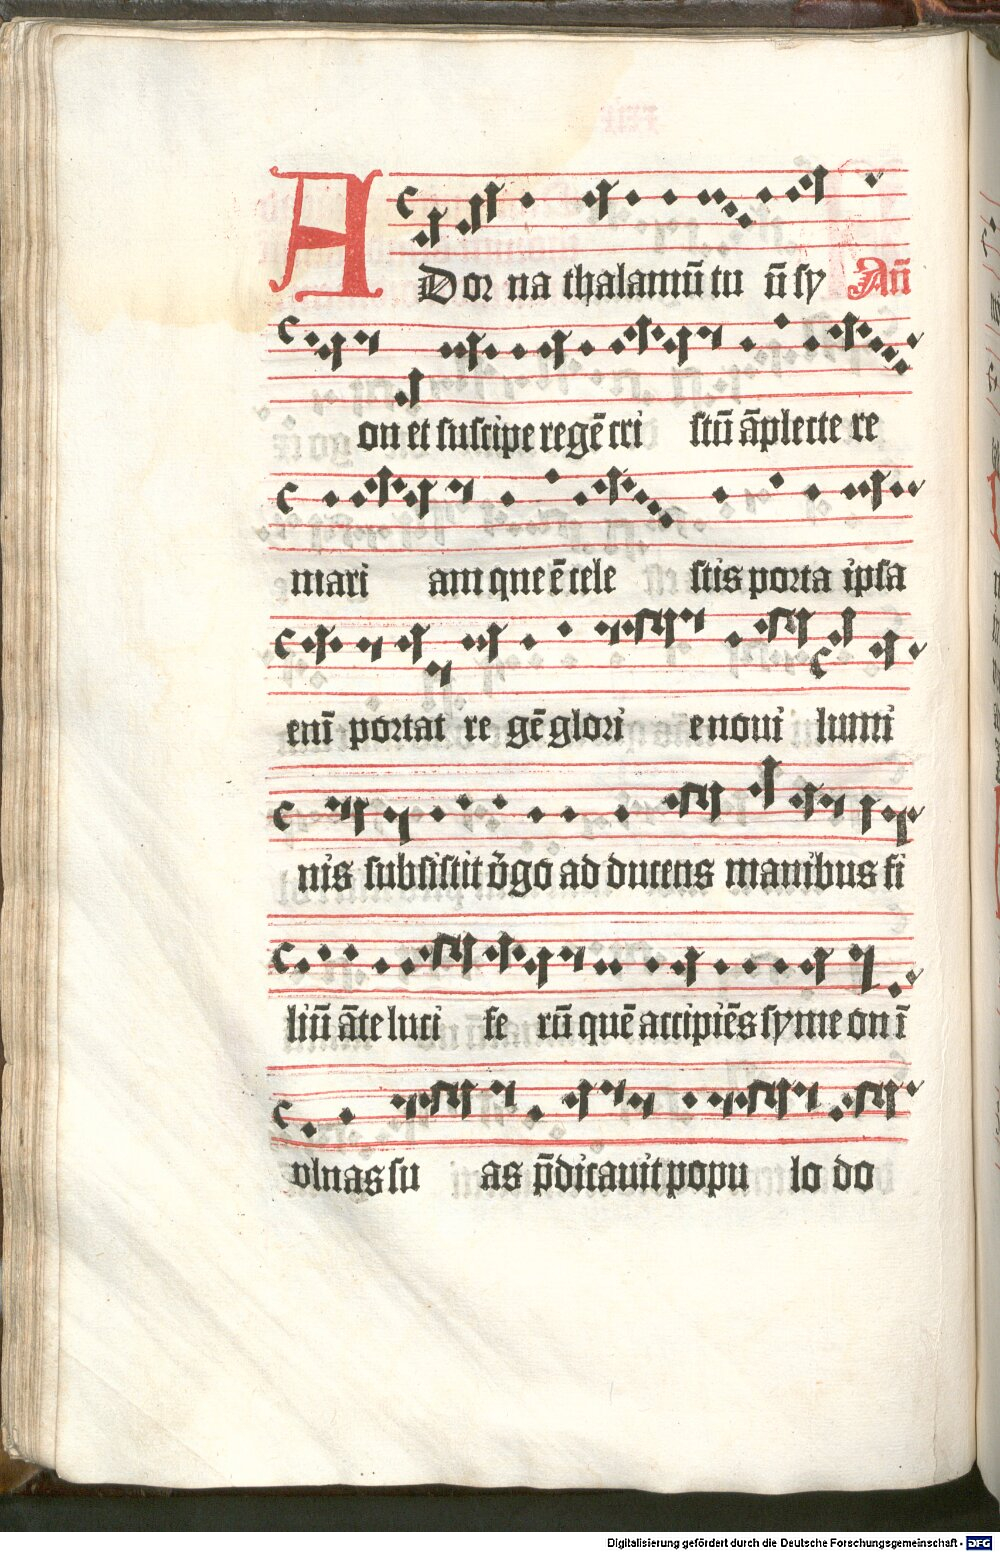 ADor na thalamū tu ū sy Añ
on et suscipe regē cri stū āplecte re
mari am que ē cele stis porta ipsa
enī portat re gē glori e noui lumi
nis subsistit v̄go ad ducens manibus fi
liū āte luci fe rū quē accipiēs symeon ī
vlnas su as p̄dicauit popu lo do
Digitalisierung gefördert durch die Deutsche Forschungsgemeinschaft - DFG